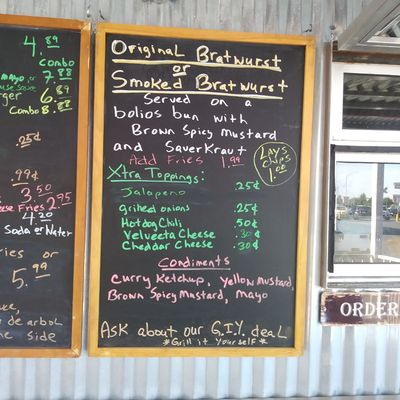 4.89
Combo
mayo, or 7.88
use sauce
ger 6.89
Combo 8.88
.25¢
.99¢
3.50
ese Fries 2.95
4.20
Soda or Water
ries or
5.99
de arbol
he side
Original Bratwurst
or
Smoked Bratwurst
Served on a
bolios bun with
Brown Spicy Mustard
and SauerKraut
Add Fries 1.99
LAYS
CHIPS
1.00
Xtra Toppings:
Jalapeno .25¢
grilled onions .25¢
Hotdog Chili .50¢
Velveeta Cheese .30¢
Cheddar Cheese .30¢
Condiments
Curry Ketchup, Yellow Mustard
Brown Spicy Mustard, Mayo
Ask about our G.I.Y. deal
*Grill it Yourself*
ORDER